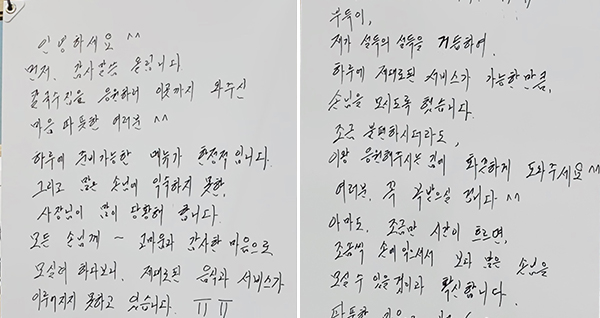 안녕하세요 ^^
먼저, 감사말씀 올립니다
칼국수집을 응원하러 이곳까지 와주신
마음 따뜻한 여러분 ^^
하루에 준비가능한 메뉴가 한정적입니다.
그리고 많은 손님에 익숙하지 못한,
사장님이 많이 당황해 합니다.
모든 손님께 ~ 고마운과 감사한 마음으로
모실려 하다보니, 제대로된 음식과 서비스가
이루어지지 못하고 있습니다. ㅠㅠ
부득이,
제가 설득의 설득을 거듭하여.
하루에 제대로된 서비스가 가능한만큼,
손님을 모시도록 했습니다.
조금 불편하시더라도,
이왕 응원해주시는 김에 화끈하게 도와주세요 ^^
여러분. 꼭 복받으실 겁니다 ^^
아마도. 조금만 시간이 흐르면,
조금씩 손에 익으셔서 보다 많은 손님을
모실 수 있을것이라 확신합니다.
따뜻한